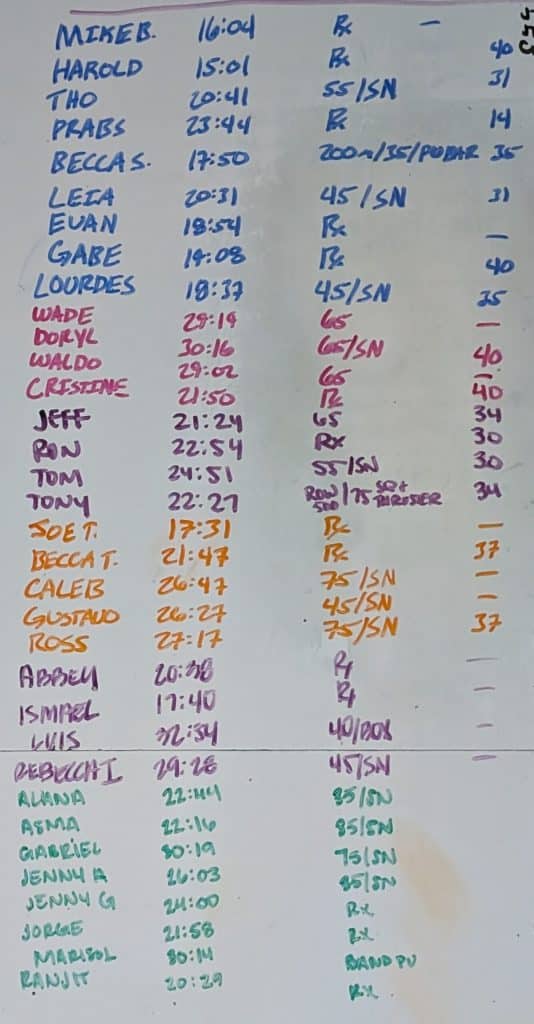 MIKE B. 16:04 Rx —
HAROLD 15:01 Rx 40
THO 20:41 55/SN 31
PRABS 23:44 Rx 14
BECCA S. 17:50 200m/35/PU BAR 35
LEIA 20:31 45/SN 31
EVAN 18:54 Rx —
GABE 19:08 Rx 40
LOURDES 18:37 45/SN 35
WADE 29:19 65 —
DORYL 30:16 65/SN 40
WALDO 29:02 65 —
CRISTINE 21:50 Rx 40
JEFF 21:24 65 34
RON 22:54 RX 30
TOM 24:51 55/SN 30
TONY 22:27 ROW 500/75 SQ + THRUSTER 34
JOE T. 17:31 Rx —
BECCA T. 21:47 Rx 37
CALEB 26:47 75/SN —
GUSTAVO 26:27 45/SN —
ROSS 27:17 75/SN 37
ABBEY 20:38 Rx —
ISMAEL 17:40 Rx —
LUIS 32:34 40/BOX —
REBECCA I 29:28 45/SN —
ALANA 22:44 85/SN
ASMA 22:16 85/SN
GABRIEL 30:19 75/SN
JENNY A 26:03 85/SN
JENNY G 24:00 RX
JORGE 21:58 RX
MARISOL 30:14 BAND PU
RANJIT 20:29 RX